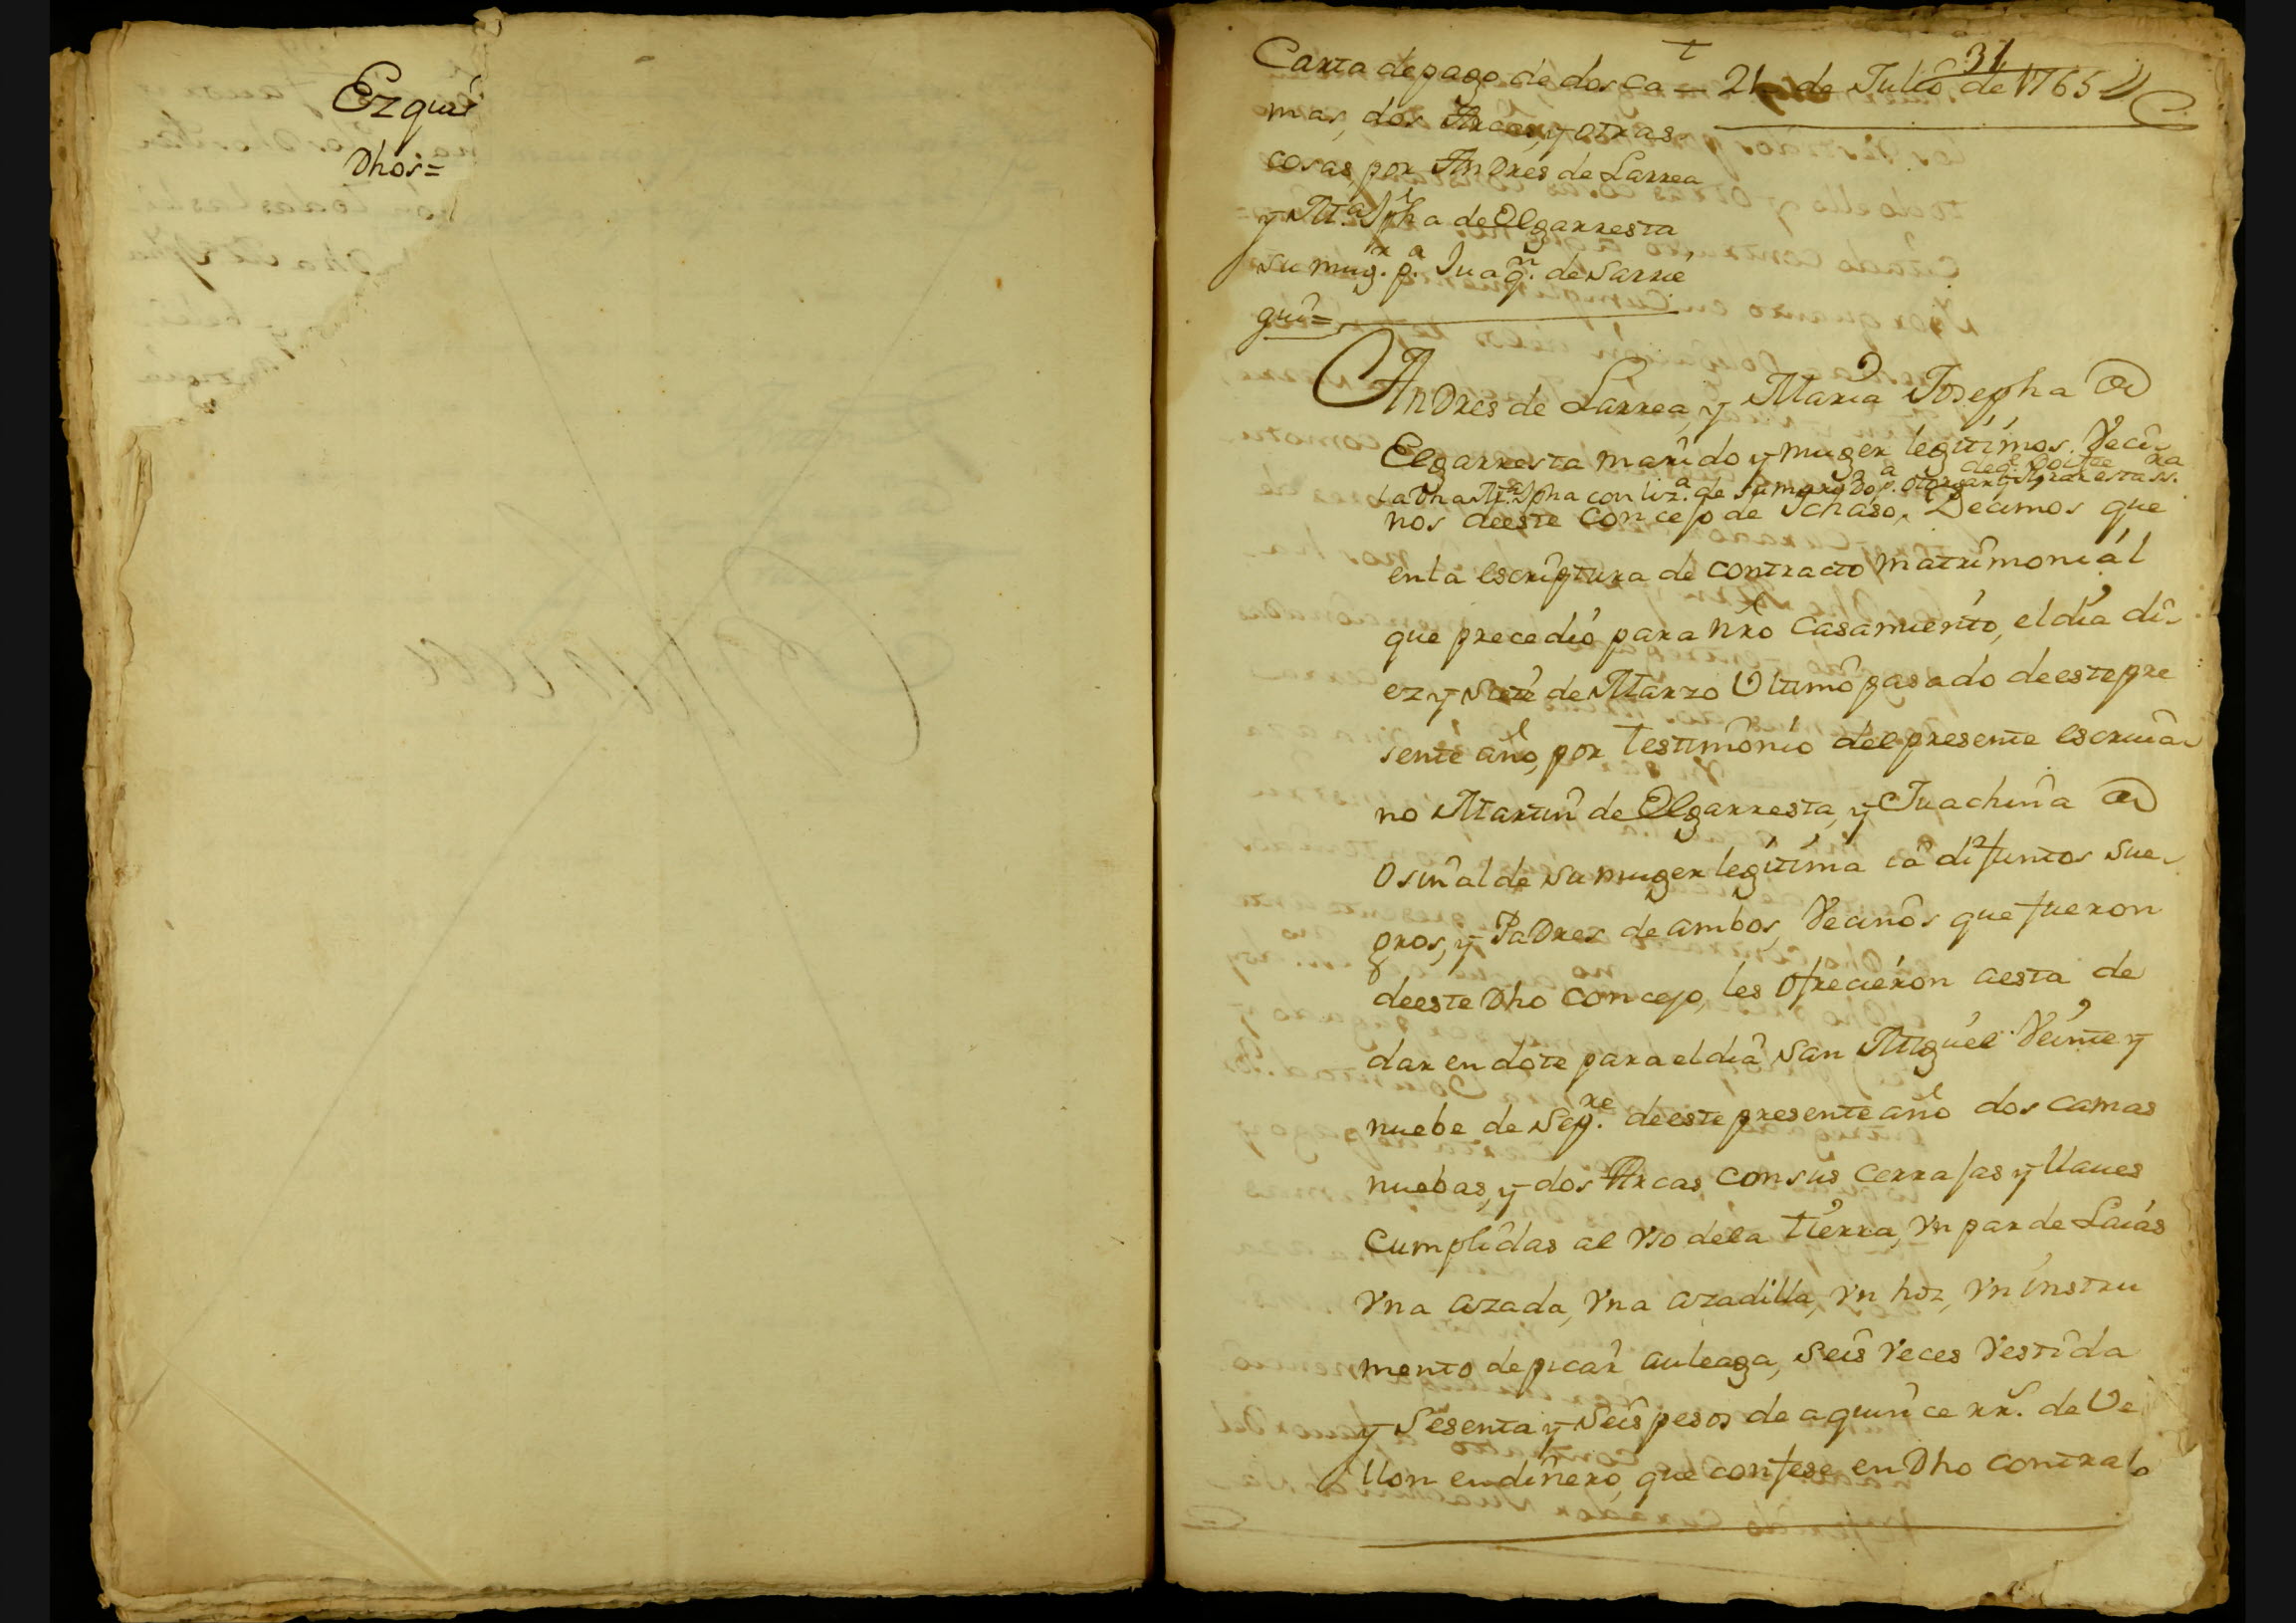 Ezqui
Dhos=
31
Carta de pago de dos ca
mas, dos Arcas, y otras
cosas, por Andres de Larrea
y M.ª Jpha de Elgarresta
su mug.r p.a Juaq.n de Sarrie
gui=
21 de Julio de 1765
Andres de Larrea, y Maria Josepha de
Elgarresta marido y muger legitimos Veci
la dha M.ª Jpha con liz.a de su marido p.a otorgar y Jurar esta ss.ra
nos de este Concejo de Ichaso, Decimos que
en la escriptura de contracto matrimonial
que precedió para nro Casamiento, el dia di
ez y siete de Marzo Ultimo pasado de este pre
sente año, por testimonio del presente escriua
no Martin de Elgarresta, y Juachina de
Osinalde su muger legitima ia difuntos sue
gros, y Padres de ambos, Vecinos que fueron
de este Dho Concejo, les ofrecieron a esta de
dar en dote para el dia San Miguel Veinte y
nuebe de Sep.re de este presente año dos camas
nuebas, y dos Arcas con sus cerrajas y llaues
Cumplidas al vso de la tierra, vn par de Laias
vna azada, vna azadilla, vn hoz, vn instru
mento de picar auleaga, seis veces vestida
y Sesenta y seis pesos de a quince rr.s de Ve
llon en dinero, que confese en Dho contrato